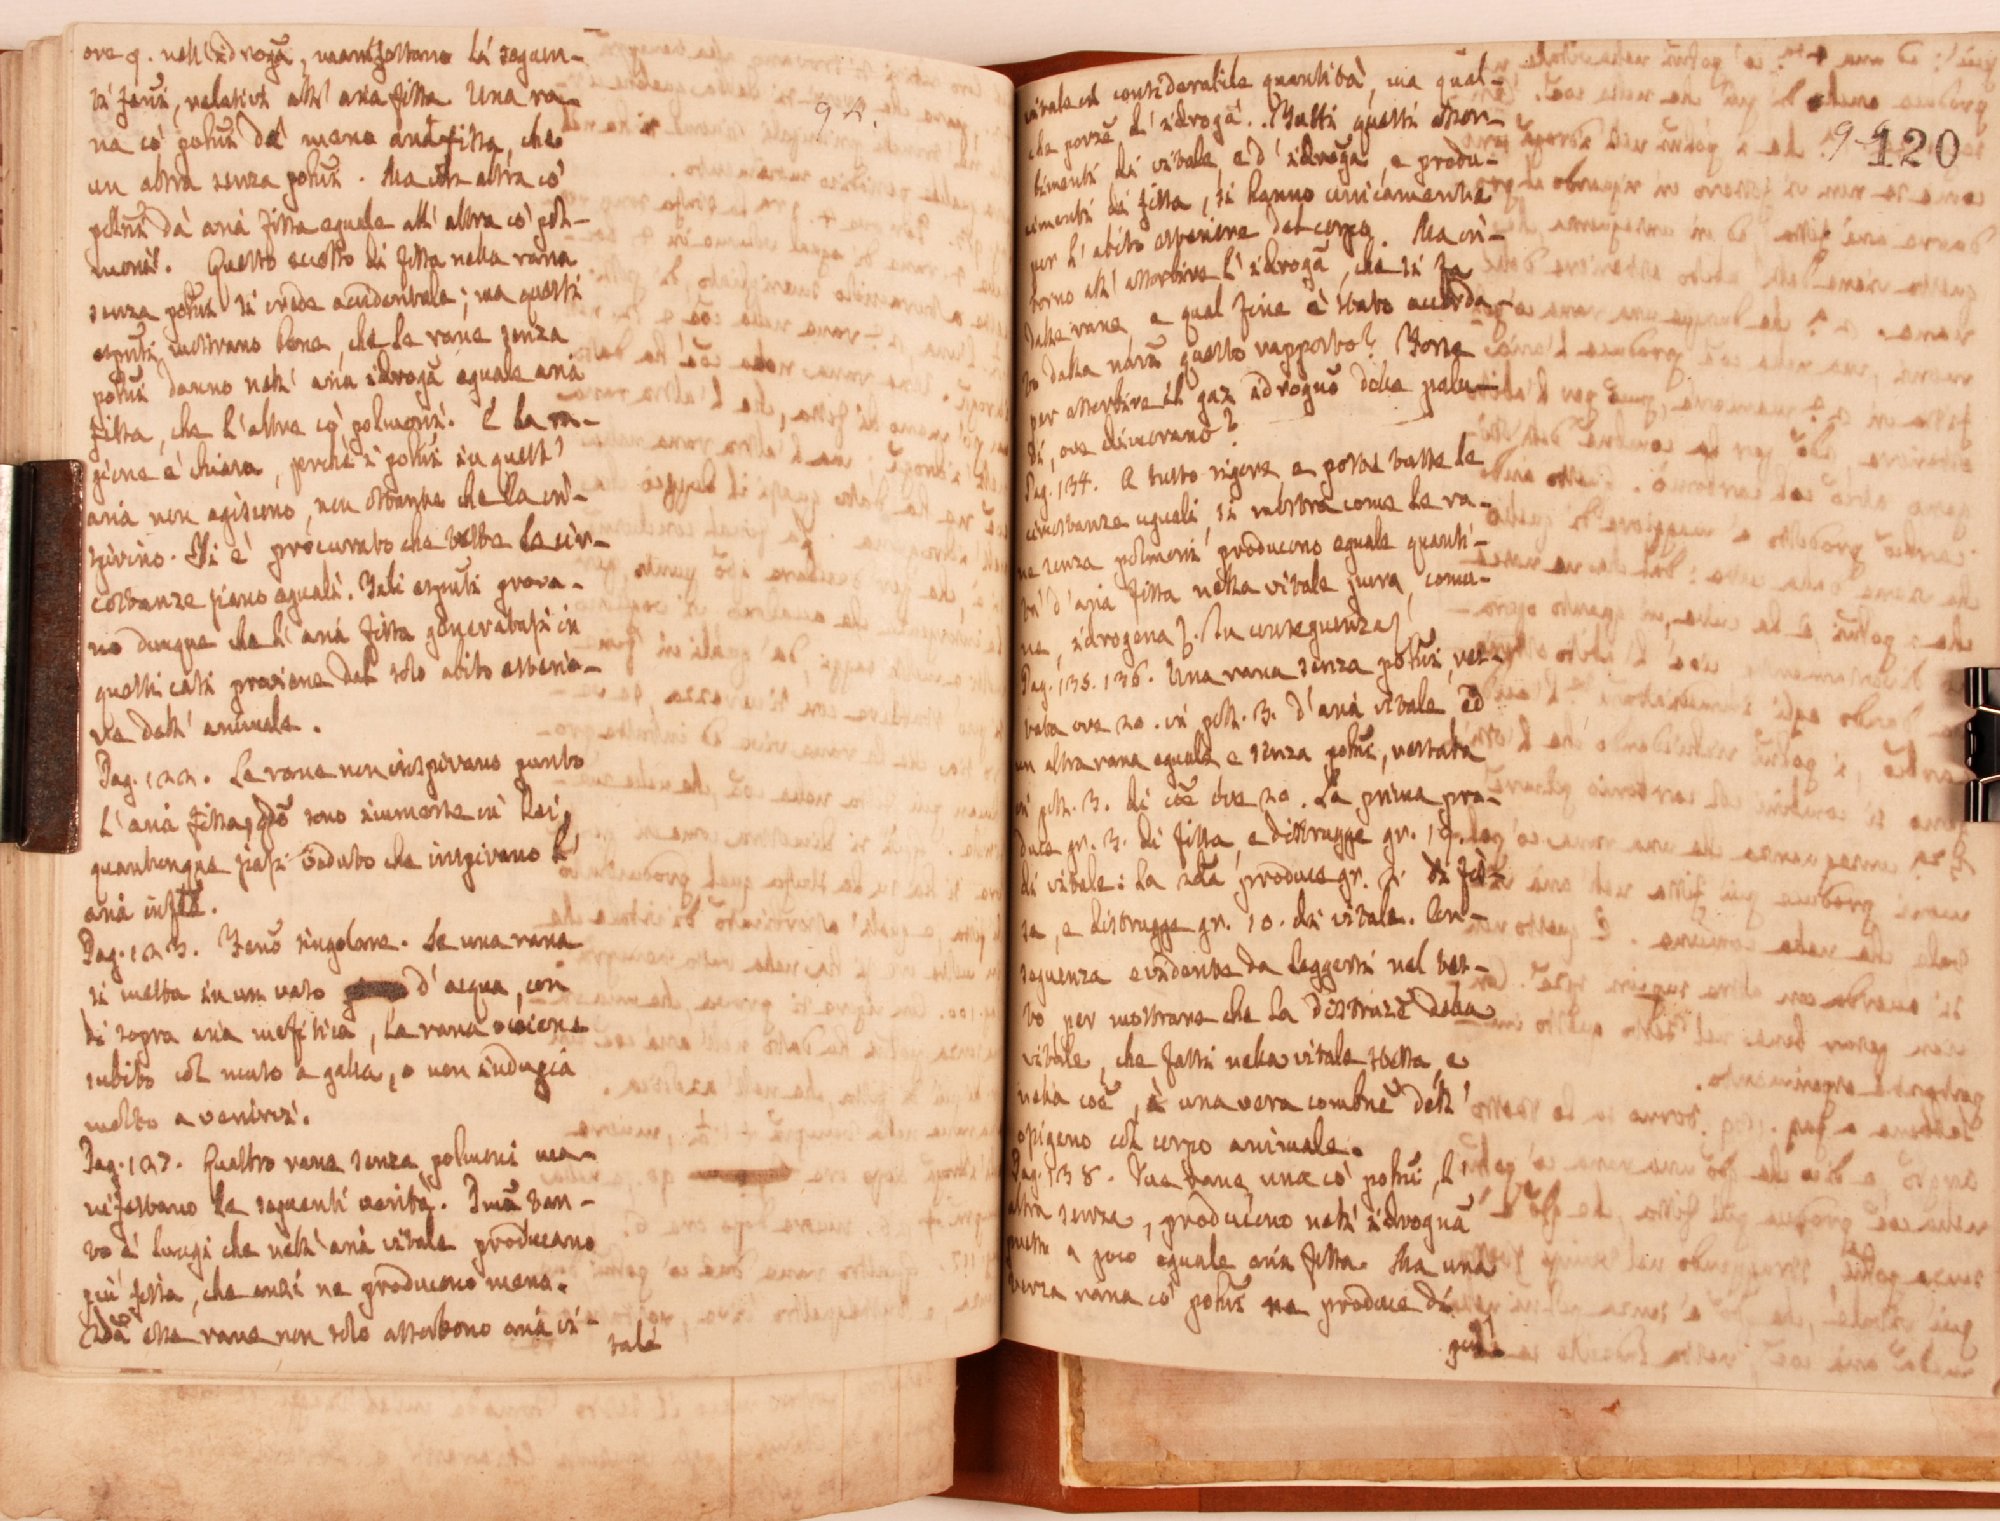 ore 9. nell'idrogā, manifestano li seguen-
ti fenūi, relativi all'aria fissa. Una ra-
na co' polūi dà meno aria fissa, che
un altra senza polūi. Ma altra co'
polūi dà aria fissa eguale all'altra co' pol-
moni. Questo eccesso di fissa nella rana
senza polūi si crede accidentale; ma questi
mostrano bene, che le rane senza
polūi danno nell'aria idrogā eguale aria
fissa, che l'altre co' polmoni. E la ra-
gione è chiara, perchè i polūi in quest'
aria non agiscono, non ostante che la in-
spirino. Si è procurato che tutte le cir-
costanze siano eguali. Tali prova-
no dunque che l'aria fissa generatasi in
questi casi proviene dal solo abito esterio-
re dell'animale.
Pag. 122. Le rane non inspirano punto
l'aria fissa, sono immerse in lei,
quantunque siasi veduto che inspirano l'
aria
Pag. 123. Fenō singolare. Se una rana
si metta in un vaso d'acqua, con
di sopra aria mefitica, la rana viene
subito col muso a galla, e non indugia
molto a venirvi.
Pag. 127. Quattro rane senza polmoni ma-
nifestano le seguenti verità. Imā tan-
to è lungi che nell'aria vitale producano
più fissa, che anzi ne producono meno.
2dā esse rane non solo assorbono aria vi-
tale
94.
vitale in considerabile quantità, ma qual-
che porzē d'idrogā. Tutti questi assor-
bimenti di vitale, e d'idrogā, e produ-
cimenti di fissa, si hanno unicamente
per l'abito esteriore del corpo. Ma in-
torno all'assorbire l'idrogā, che si fa
dalle rane, a qual fine è stato accorda-
to dalla natūa questo rapporto? Forse
per assorbire il gaz idrogēo delle palu-
di, ove dimorano?
Pag. 134. A tutto rigore, e poste tutte le
circostanze uguali, si mostra come le ra-
ne senza polmoni producono eguale quanti-
tà d'aria fissa nella vitale pura, comu-
ne, idrogena. conseguenza.
Pag. 135. 136. Una rana senza polūi, res-
tata ore 20. in poll. 3. d'aria vitale, ed
un altra rana eguale e senza polūi, restata
in poll. 3. di coē ore 20. La prima pro-
duce gr. 3. di fissa, e distrugge gr. 19.
di vitale: la 2da produce gr. 2. di fis-
sa, e distrugge gr. 10. di vitale. Con-
seguenza evidente da leggersi nel tes-
to, per mostrare che la distruzē della
vitale, che fassi nella vitale stessa, e
nella coē, è una vera combinē dell'
ossigeno col corpo animale.
Pag. 138. Due rane, una co' polūi, l'
altra senza, producono nell'idrogenā
presso a poco eguale aria fissa. Ma una
terza rana co' polūi ne produce di
più
120